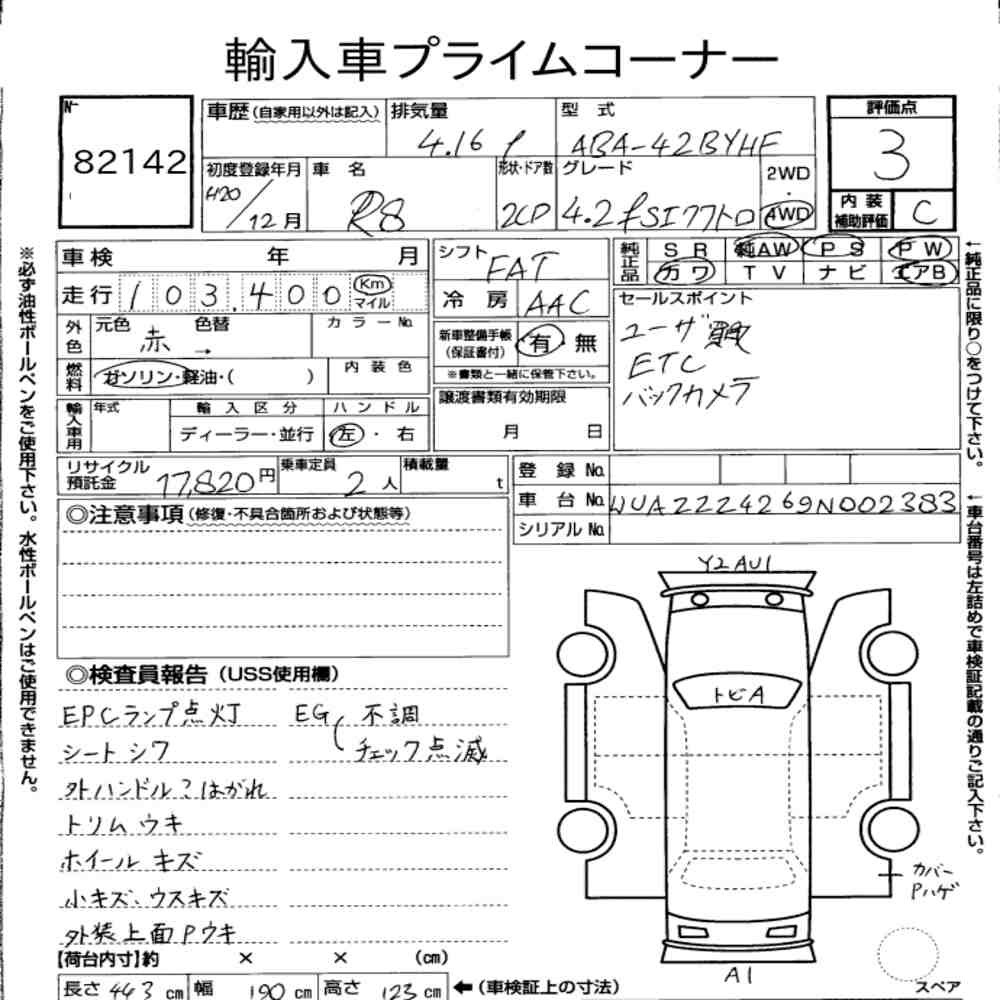 輸入車プライムコーナー
No
82142
車歴(自家用以外は記入)
排気量
4.16 ℓ
型 式
ABA-42BYHF
評価点
3
初度登録年月
H20/12月
車 名
R8
形状・ドア数
2CP
グレード
4.2FSIクワトロ
2WD
・
4WD
内 装
補助評価
C
車検 年 月
走行 103,400 Km
マイル
外色
元色 赤
色替 →
カラーNo.
燃料
ガソリン・軽油・( )
内 装 色
輸入車用
年式
輸 入 区 分
ディーラー・並行
ハ ン ド ル
左 ・ 右
シフト
FAT
冷 房
AAC
新車整備手帳
(保証書付)
有・無
※書類と一緒に保管下さい。
譲渡書類有効期限
月 日
純正品
SR 純AW PS PW
カワ TV ナビ エアB
セールスポイント
ユーザー買取
ETC
バックカメラ
リサイクル
預託金
17,820円
乗車定員
2人
積載量
t
登 録 No.
車 台 No. WUAZZZ4269N002383
シリアル No.
◎注意事項(修復・不具合箇所および状態等)
◎検査員報告(USS使用欄)
EPCランプ点灯 EG 不調
シートシワ チェック点滅
外ハンドルコはがれ
トリムウキ
ホイールキズ
小キズ、ウスキズ
外装上面Pウキ
Y2 AU1
トビA
カバー
Pハゲ
A1
スペア
【荷台内寸】約 × × (cm)
長さ 443 cm 幅 190 cm 高さ 123 cm ←(車検証上の寸法)
※必ず油性ボールペンをご使用下さい。水性ボールペンはご使用できません。
←純正品に限り○をつけて下さい。
←車台番号は左詰めで車検証記載の通りご記入下さい。